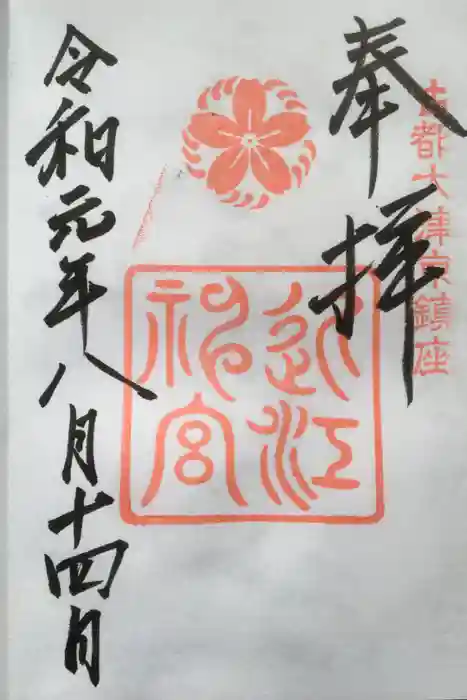 古都大津京鎮座
奉拝
近江
神宮
令和元年八月十四日